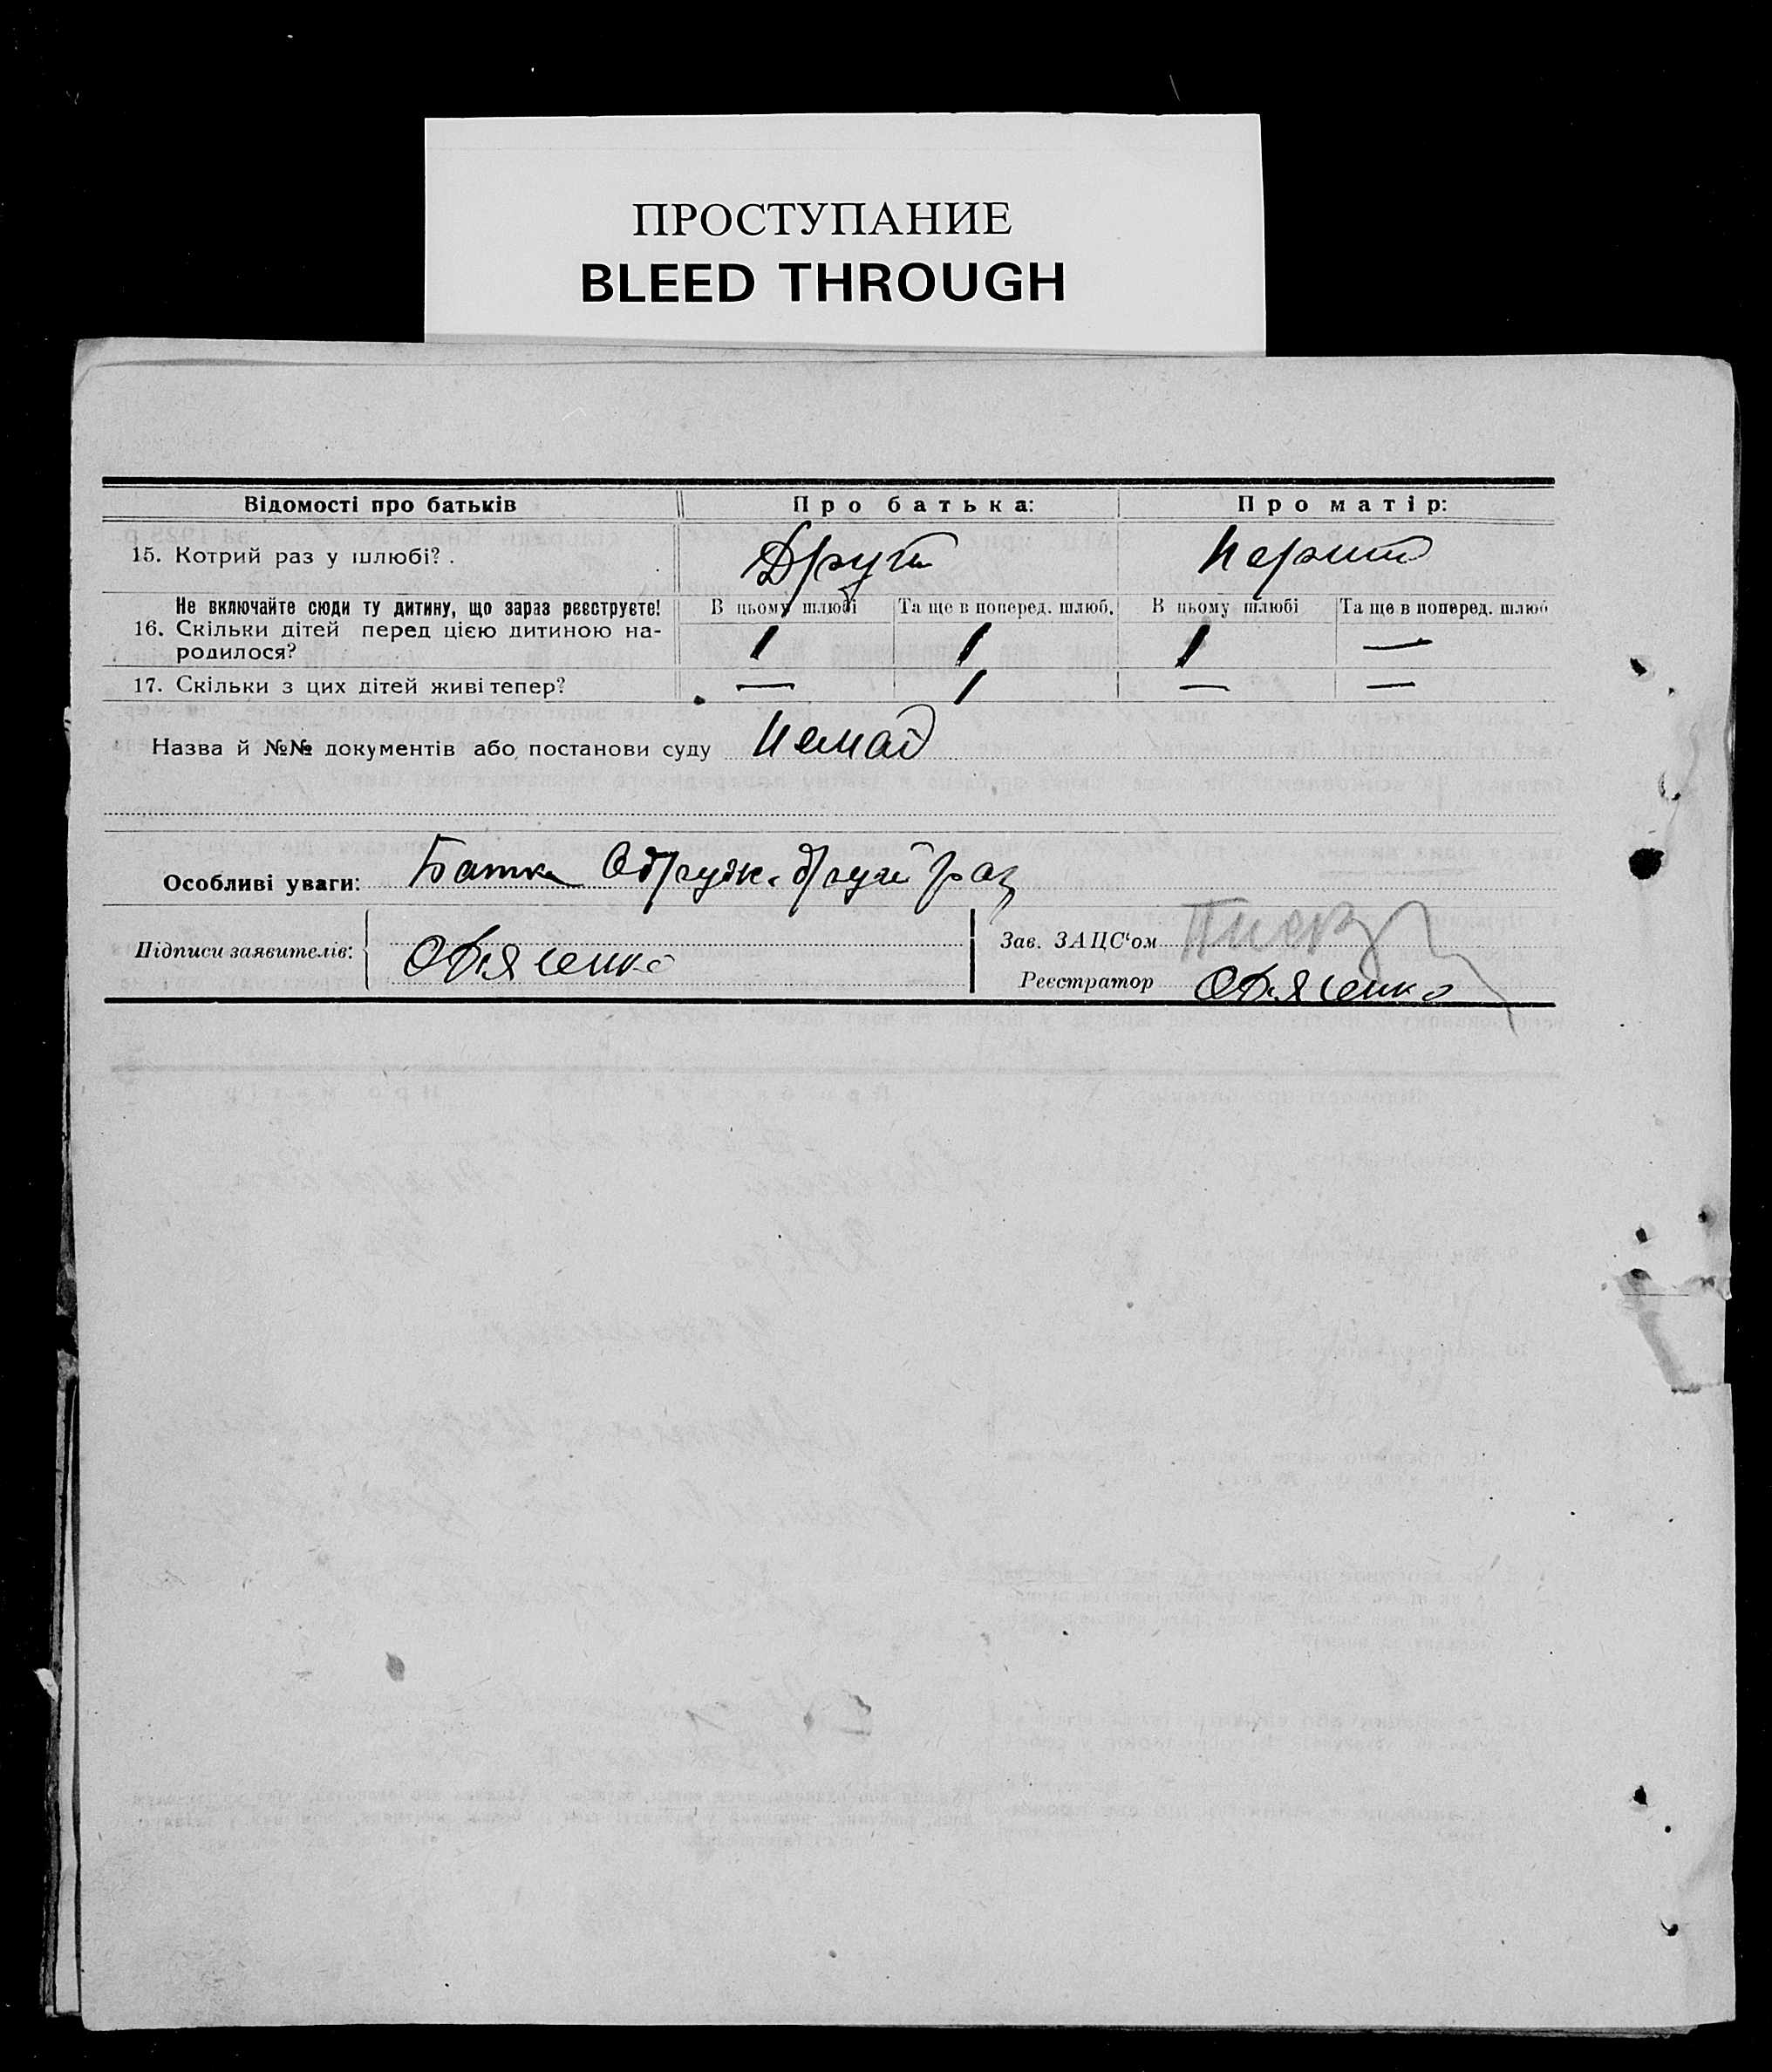 ПРОСТУПАНИЕ
BLEED THROUGH
Відомості про батьків Про батька: Про матір:
15. Котрий раз у шлюбі? . Другий Перший
Не включайте сюди ту дитину, що зараз реєструєте! В цьому шлюбі Та ще в поперед. шлюб. В цьому шлюбі Та ще в поперед. шлюб
16. Скільки дітей перед цією дитиною на-
родилося? 1 1 1 —
17. Скільки з цих дітей живі тепер? — 1 — —
Назва й №№ документів або постанови суду Немає
Особливі уваги: Батко Одруж. другий раз
Підписи заявителів:
Зав. ЗАЦС'ом
Реєстратор